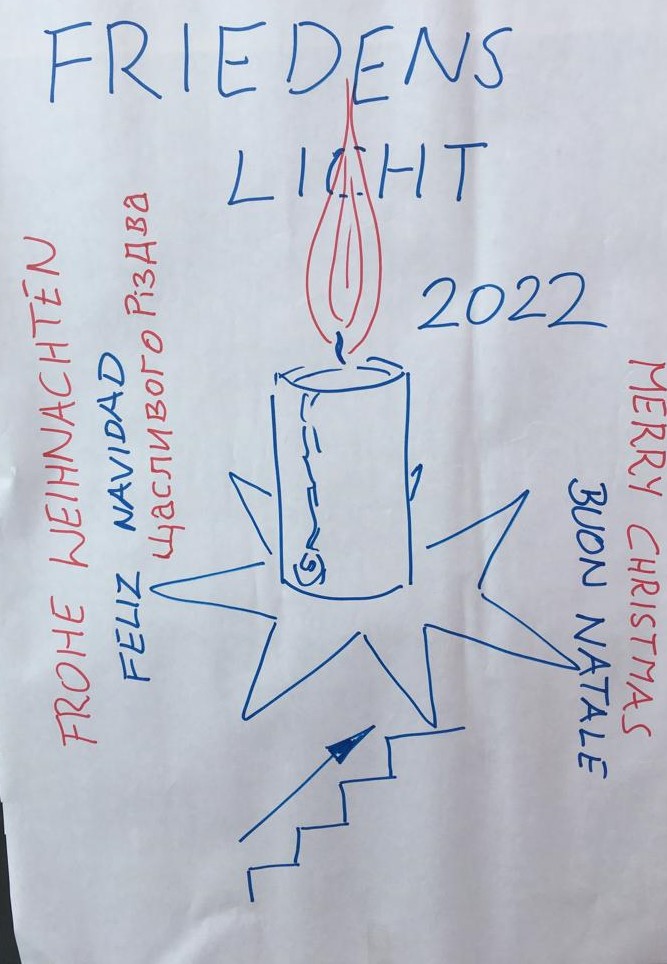 FRIEDENS
LICHT
2022
FROHE WEIHNACHTEN
FELIZ NAVIDAD
Щасливого РізДва
MERRY CHRISTMAS
BUON NATALE